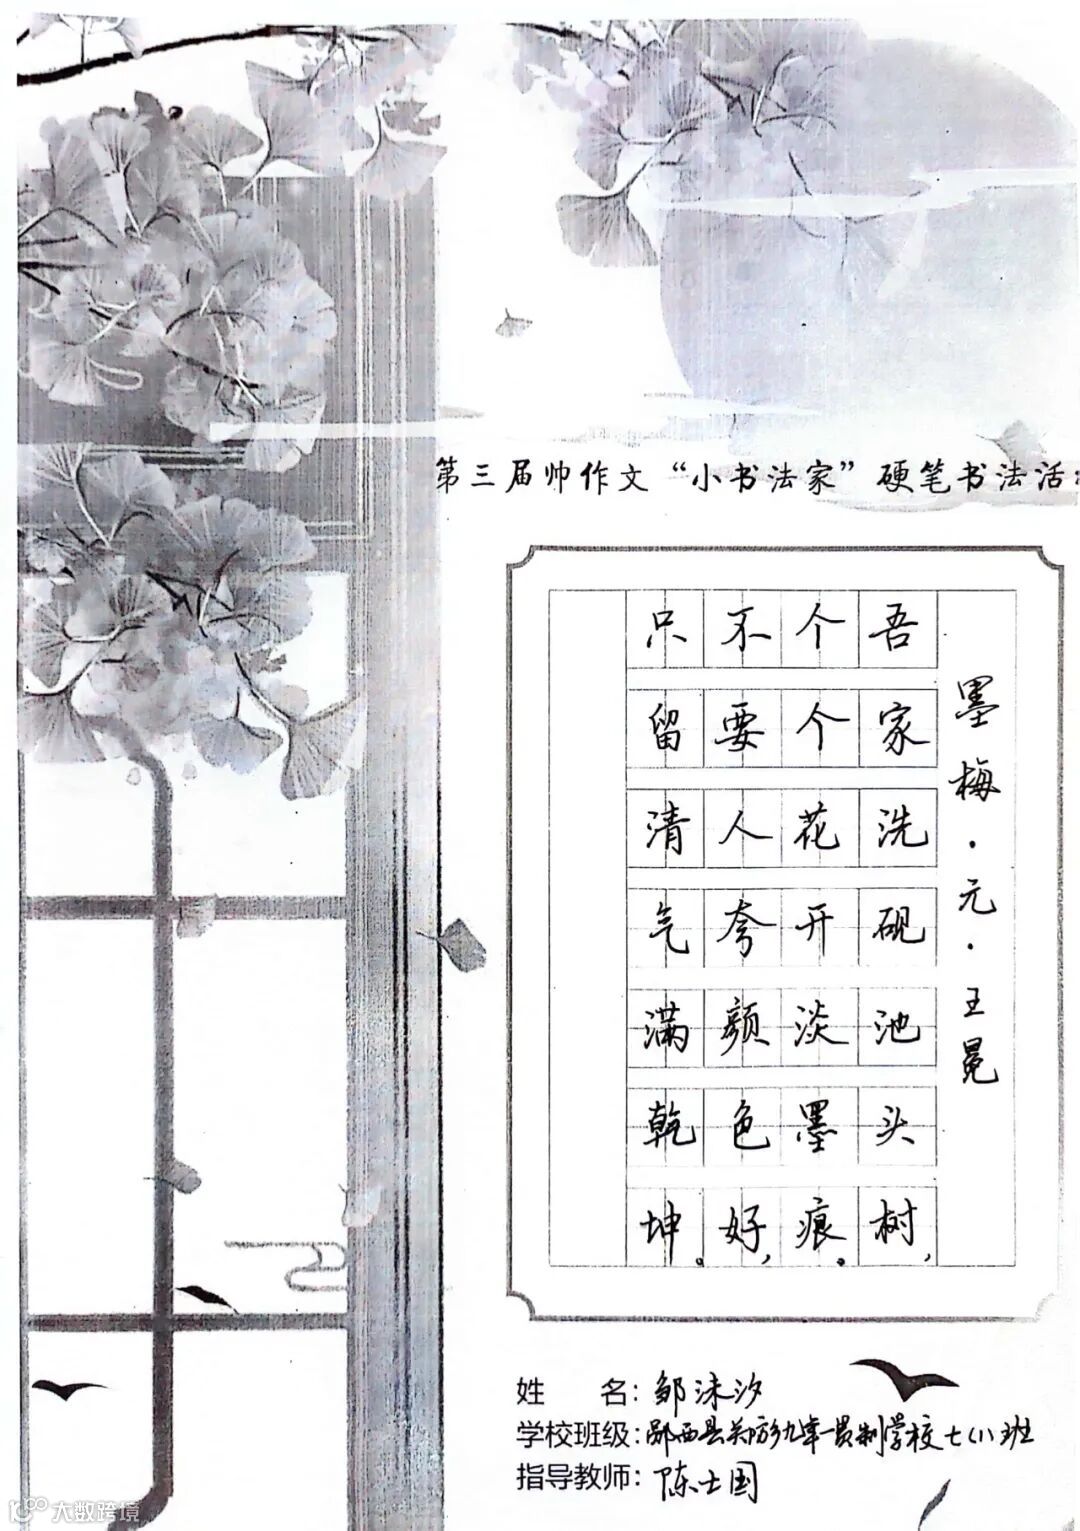 第三届帅作文“小书法家”硬笔书法活
墨梅·元·王冕
吾家洗砚池头树，
个个花开淡墨痕。
不要人夸颜色好，
只留清气满乾坤。
姓 名：邹沫汐
学校班级：郧西县关防乡九年一贯制学校七（1）班
指导教师：陈士国
大数跨境